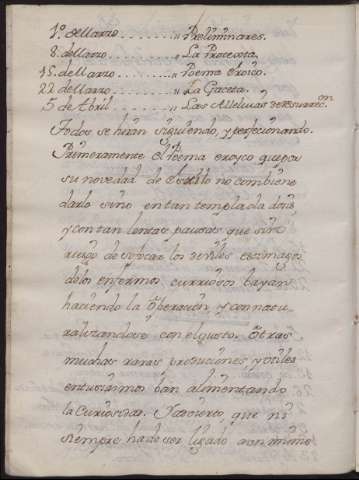 1º de Marzo . . . . . . . . . . „ Preliminares.
8. de Marzo . . . . . . . . . „ La Protesta.
15. de Marzo . . . . . . . . „ Poema eroico.
22 de Marzo . . . . . . . . „ La Gaceta.
5 de Abril . . . . . . „ Las Alleluias de Resurrec.on
Todos se hiran siguiendo, y perfecionando.
Primeramente el Poema eroyco que por
su novedad de estilo no combiene
darlo sino en tan templada dosis
y con tan lentas pausas que sin
riesgo de sofocar los deviles estomagos
delos enfermos curiosos bayan
haciendo la operacion y connatu
ralizandose con el gusto. Otras
muchas raras produciones, y utiles
entusiasmos ban alimentando
la Curiosidad. Y advierto, que ni
siempre hade ser ligado aun mismo